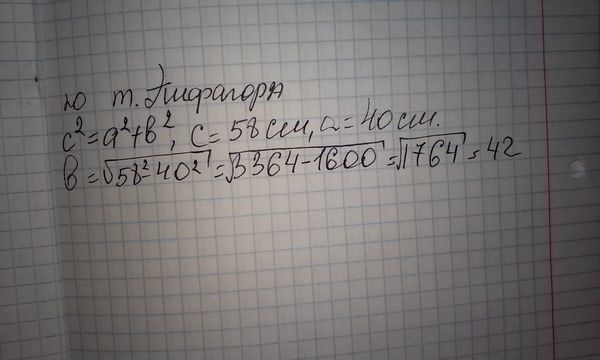 по т. Пифагора
c²=a²+b², c=58см, a=40см.
b=√58²-40²=√3364-1600=√1764=42